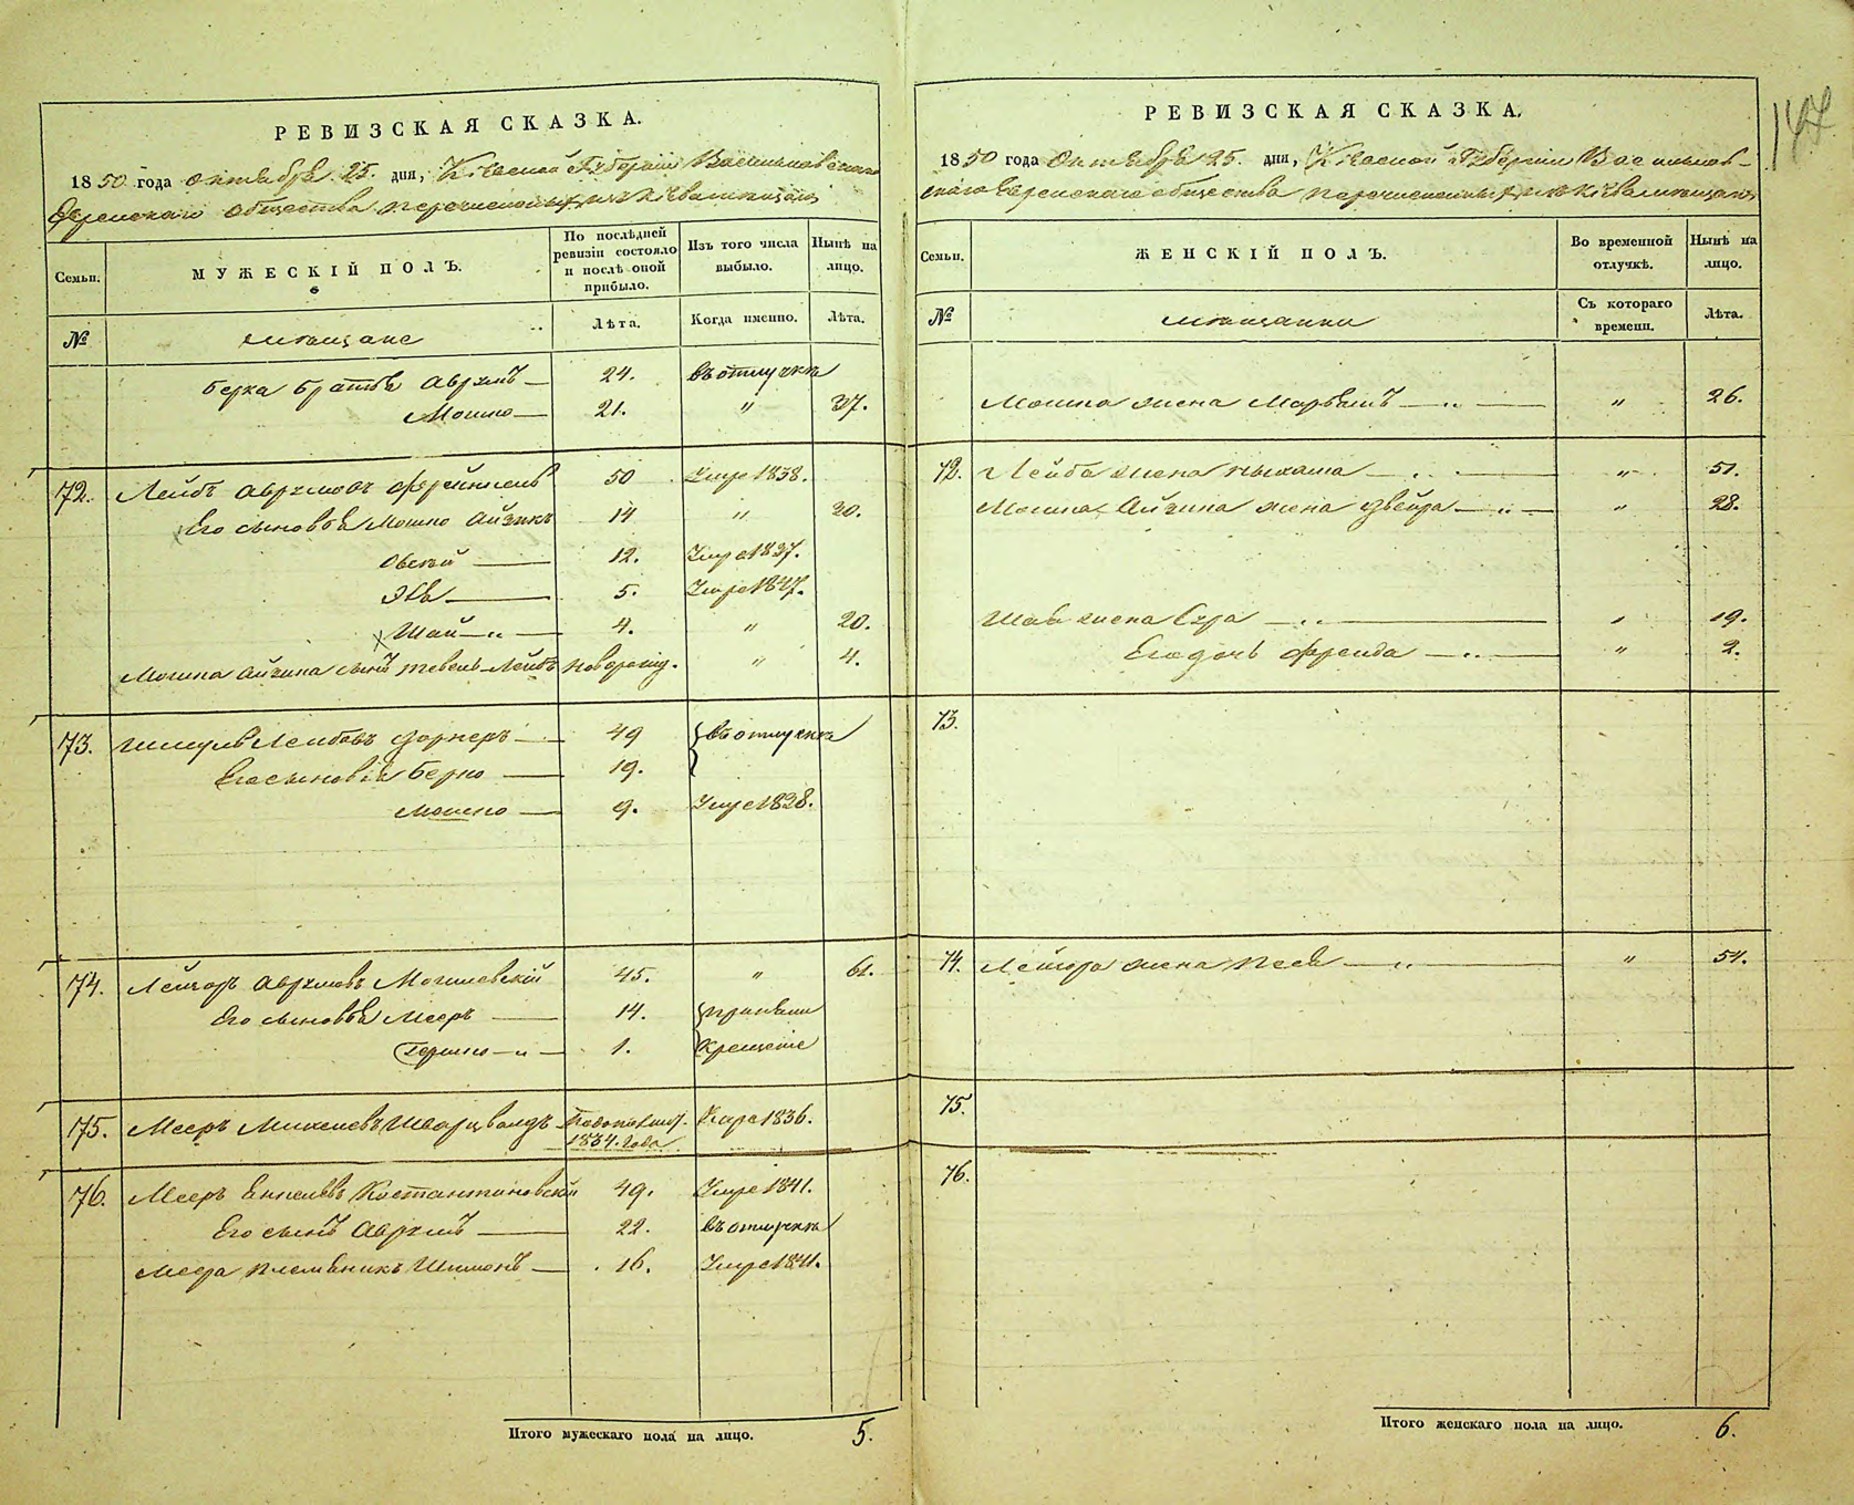 РЕВИЗСКАЯ СКАЗКА.
1850 года Октября 25. дня, Кіевской Губерніи Васильковскаго
Еврейскаго общества перечисленныхъ
Семьи.
МУЖЕСКІЙ ПОЛЪ.
По послѣдней ревизіи состояло и послѣ оной прибыло.
Изъ того числа выбыло.
Нынѣ на лицо.
№
мѣщане
Лѣта.
Когда именно.
Лѣта.
Берка братья Аврумъ 24. въ отлучкѣ
Мошко 21. " 37.
72. Лейбъ Аврумовъ 50 Умре 1838.
Его сыновья Мошко Айзикъ 14 " 30.
Овсей 12. Умре 1837.
5. Умре 1847.
Шай 4. " 20.
Мошка Айзика сынъ Тевель-Лейбъ новорожд. " 4.
73. Шмуль Лейбовъ 49 въ отлучкѣ
Его сыновья Берко 19.
Мошко 9. Умре 1838.
74. Лейзоръ Аврумовъ Могилевскій 45. " 61.
Его сыновья Мееръ 14. приняли
Гершко 1. крещеніе
75. Мееръ Шварцвалдъ 1834. года Умре 1836.
76. Мееръ Костантиновскій 49. Умре 1841.
Его сынъ Аврумъ 22. въ отлучкѣ
Меера племянникъ Шимонъ 16. Умре 1841.
Итого мужескаго пола на лицо. 5.
147
РЕВИЗСКАЯ СКАЗКА.
1850 года Октября 25. дня, Кіевской Губерніи Васильков-
скаго Еврейскаго общества перечисленныхъ
Семьи.
ЖЕНСКІЙ ПОЛЪ.
Во временной отлучкѣ.
Нынѣ на лицо.
№
мѣщанки
Съ котораго времени.
Лѣта.
Мошка жена " 26.
72. Лейба жена " 51.
Мошка Айзика жена Двейра " 28.
Шая жена Сура " 19.
Его дочь Фрейда " 2.
73.
74. Лейзора жена Песя " 54.
75.
76.
Итого женскаго пола на лицо. 6.